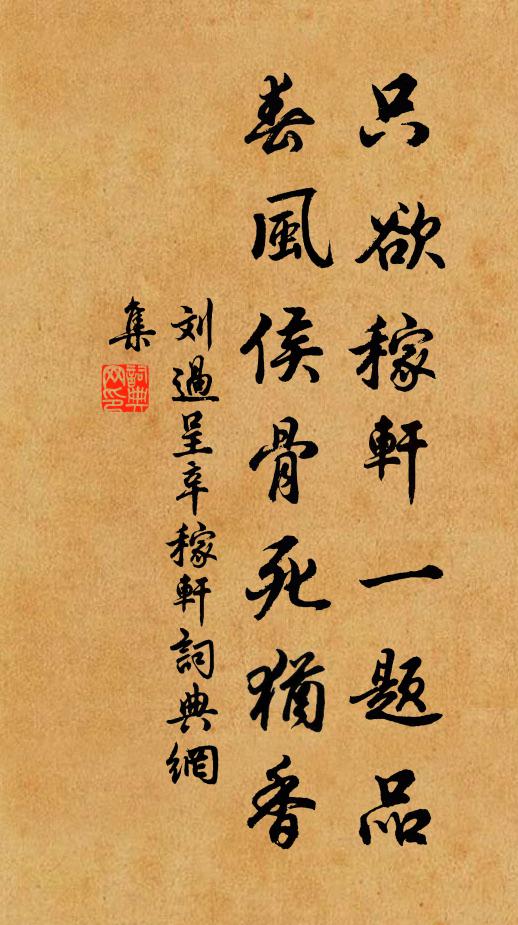 只欲稼軒一题品
春風侯骨死猶香
刘過呈辛稼軒詞典網
集
詞典網印